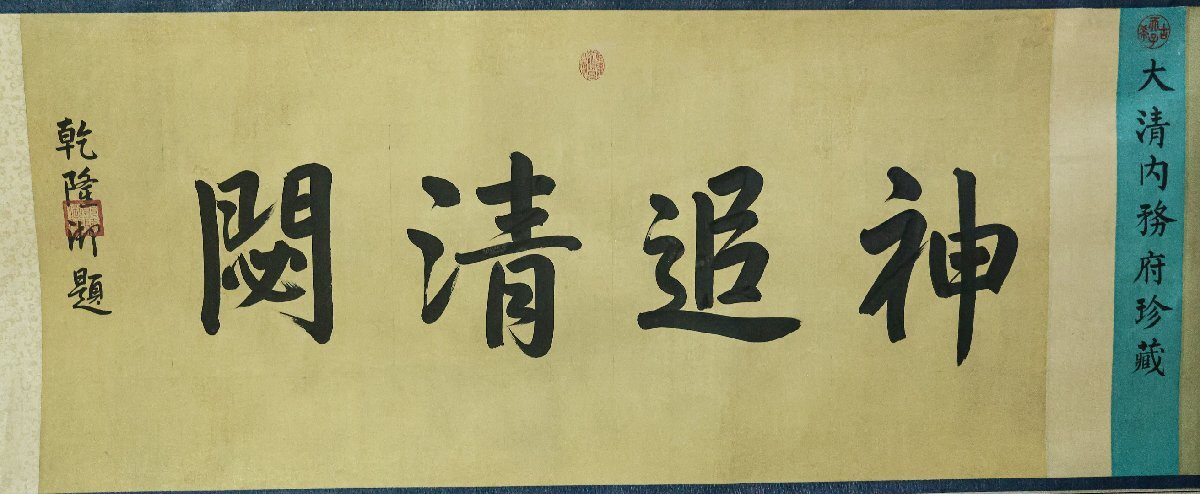 大清内務府珍藏
神追清閟
乾隆御題